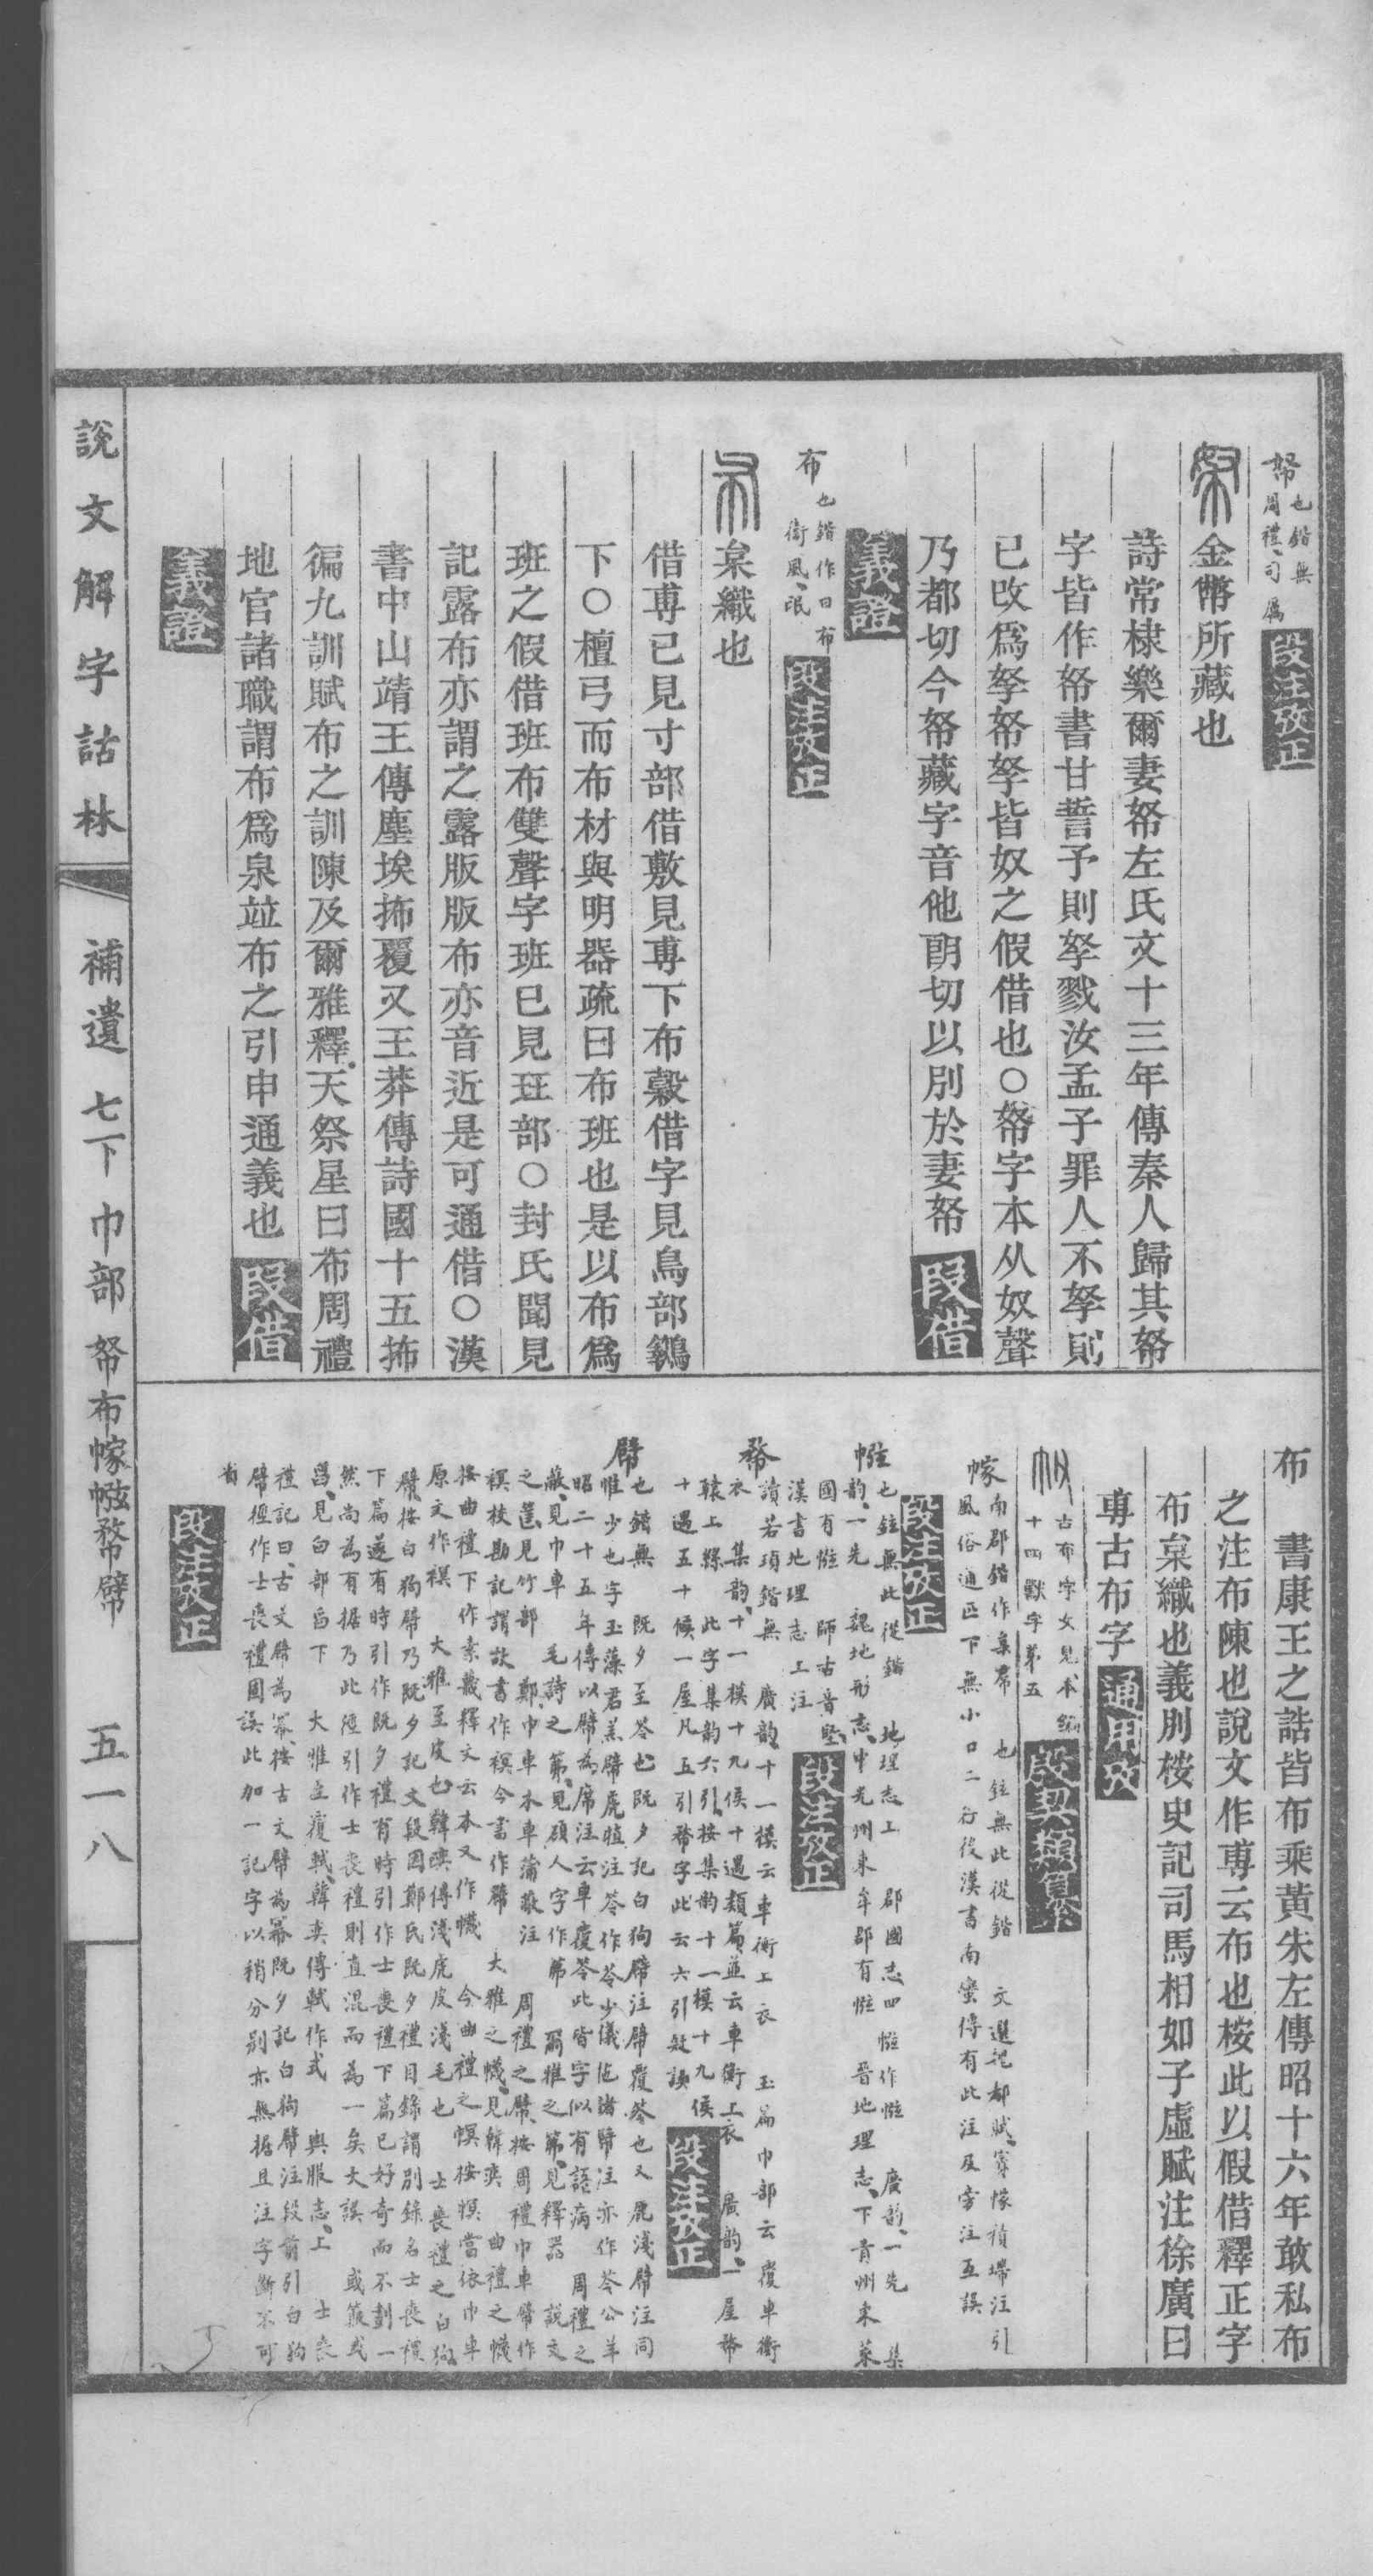 帑也鍇無
周禮司厲
段注攷正
金幣所藏也
詩常棣樂爾妻帑左氏文十三年傳秦人歸其帑
字皆作帑書甘誓予則孥戮汝孟子罪人不孥則
已改爲孥帑孥皆奴之假借也〇帑字本从奴聲
乃都切今帑藏字音他朗切以別於妻帑 段借
義證
布也鍇作曰布
衞風氓
段注攷正
枲織也
借尃已見寸部借敷見尃下布穀借字見鳥部鶨
下〇檀弓而布材與明器疏曰布班也是以布爲
班之假借班布雙聲字班已見玨部〇封氏聞見
記露布亦謂之露版版布亦音近是可通借〇漢
書中山靖王傳塵埃抪覆又王莽傳詩國十五抪
徧九訓賦布之訓陳及爾雅釋天祭星曰布周禮
地官諸職謂布爲泉竝布之引申通義也 段借
義證
布 書康王之誥皆布乘黃朱左傳昭十六年敢私布
之注布陳也說文作尃云布也桉此以假借釋正字
布枲織也義別桉史記司馬相如子虛賦注徐廣曰
尃古布字 通用攷
古布字文見本編
十四獸字第五
殷契類纂
幏南郡鍇作枲席 也鉉無此從鍇 文選魏都賦賨幏積墆注引
風俗通匹下無小口二行後漢書南蠻傳有此注及旁注互誤
段注攷正
也鉉無此從鍇 地理志上 郡國志四 廣韵一先 集
韵一先 魏地形志中光州東牟郡有 晉地理志下靑州東萊
國有 師古音堅
漢書地理志上注
段注攷正
讀若頊鍇無 廣韵十一模云車衡上衣 玉篇巾部云覆車衡
衣集韵十一模十九侯十遇類篇並云車衡上衣 廣韵一屋
轅上縣此字集韵六引桉集韵十一模十九侯
十遇五十候一屋凡五引字此云六引誤
段注攷正
也鍇無 既夕至苓也既夕記白狗幦注幦覆笭也又鹿淺幦注同
惟少也字玉藻君羔幦虎犆注苓作笭少儀拖諸幦注亦作苓公羊
昭二十五年傳以幦為席注云車覆笭此皆字似有語病 周禮之
見巾車 毛詩之第見碩人字作茀 爾雅之第見釋器 說文
之見竹部 鄭巾車木車蒲蔽注 周禮之桉周禮巾車幦作
𧜀校勘記謂故書作𧜀今書作幦 大雅之幭見韓奕 曲禮之幭
桉曲禮下作素幭釋文云本又作幭 今曲禮之幎桉幎當依巾車
原文作𧜀 大雅至皮也韓奕傳淺虎皮淺毛也 士喪禮之白狗
幦桉白狗幦乃既夕記文段因鄭氏既夕禮目錄謂別錄名士喪禮
下篇遂有時引作既夕禮有時引作士喪禮下篇已好奇而不劃一
然尚為有據乃此徑引作士喪禮則直混而為一矣大誤 或簚或
見白部下 大雅至覆軾韓奕傳軾作式 輿服志上 士喪
禮記曰古文幦為冪桉古文幦為冪既夕記白狗幦注段前引白狗
幦徑作士喪禮固誤此加一記字以稍分別亦無據且注字斷不可
省
段注攷正
說文解字詁林 補遺 七下 巾部 帑布幏 五一八